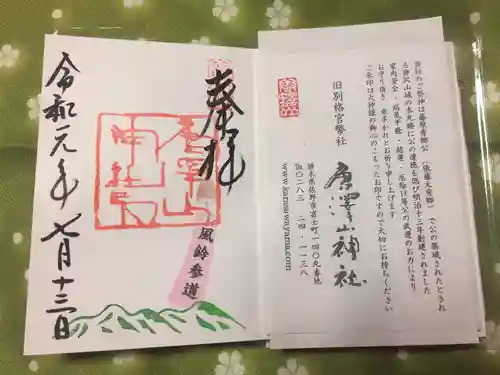 奉拝
風鈴参道
令和元年七月十三日
当社のご祭神は藤原秀郷公(俵藤太秀郷)で公の築城されたとされ
る唐沢山城の本丸跡に公の遺徳を偲び明治十三年創建されました
家内安全・病気平癒・開運・厄除け等全ての武運のお力により
お守り頂き幸多かれとお祈り申し上げます
ご朱印は大神様の御心のこもったお印ですので大切にお持ちください
旧別格官幣社
唐澤山神社
栃木県佐野市富士町一四〇九番地
〇二八三-二四-一一三八
www.karasawayama.com